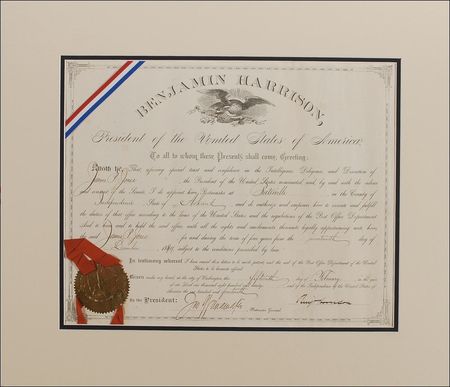 BENJAMIN HARRISON,
President of the United States of America;
To all to whom these Presents shall come, Greeting:
Know ye, That reposing special trust and confidence in the Intelligence, Diligence, and Discretion of
James Jones the President of the United States nominated, and, by and with the advice
and consent of the Senate, I do appoint him, Postmaster at Batesville in the County of
Independence State of and do authorize and empower him to execute and fulfill
the duties of that office according to the laws of the United States and the regulations of the Post Office Department
And to have and to hold the said office with all the rights and emoluments thereunto legally appertaining unto him,
the said James Jones for and during the term of four years from the day of
189 subject to the conditions prescribed by law.
In testimony whereof I have caused this letter to be made patent, and the seal of the Post Office Department of the United
States to be hereunto affixed.
Given under my hand, at the city of Washington, the fifteenth day of February in the year
of our Lord one thousand eight hundred and ninety and of the Independence of the United States of
America the one hundred and fourteenth
By the President:
Benj Harrison
Jno Wanamaker
Postmaster General.